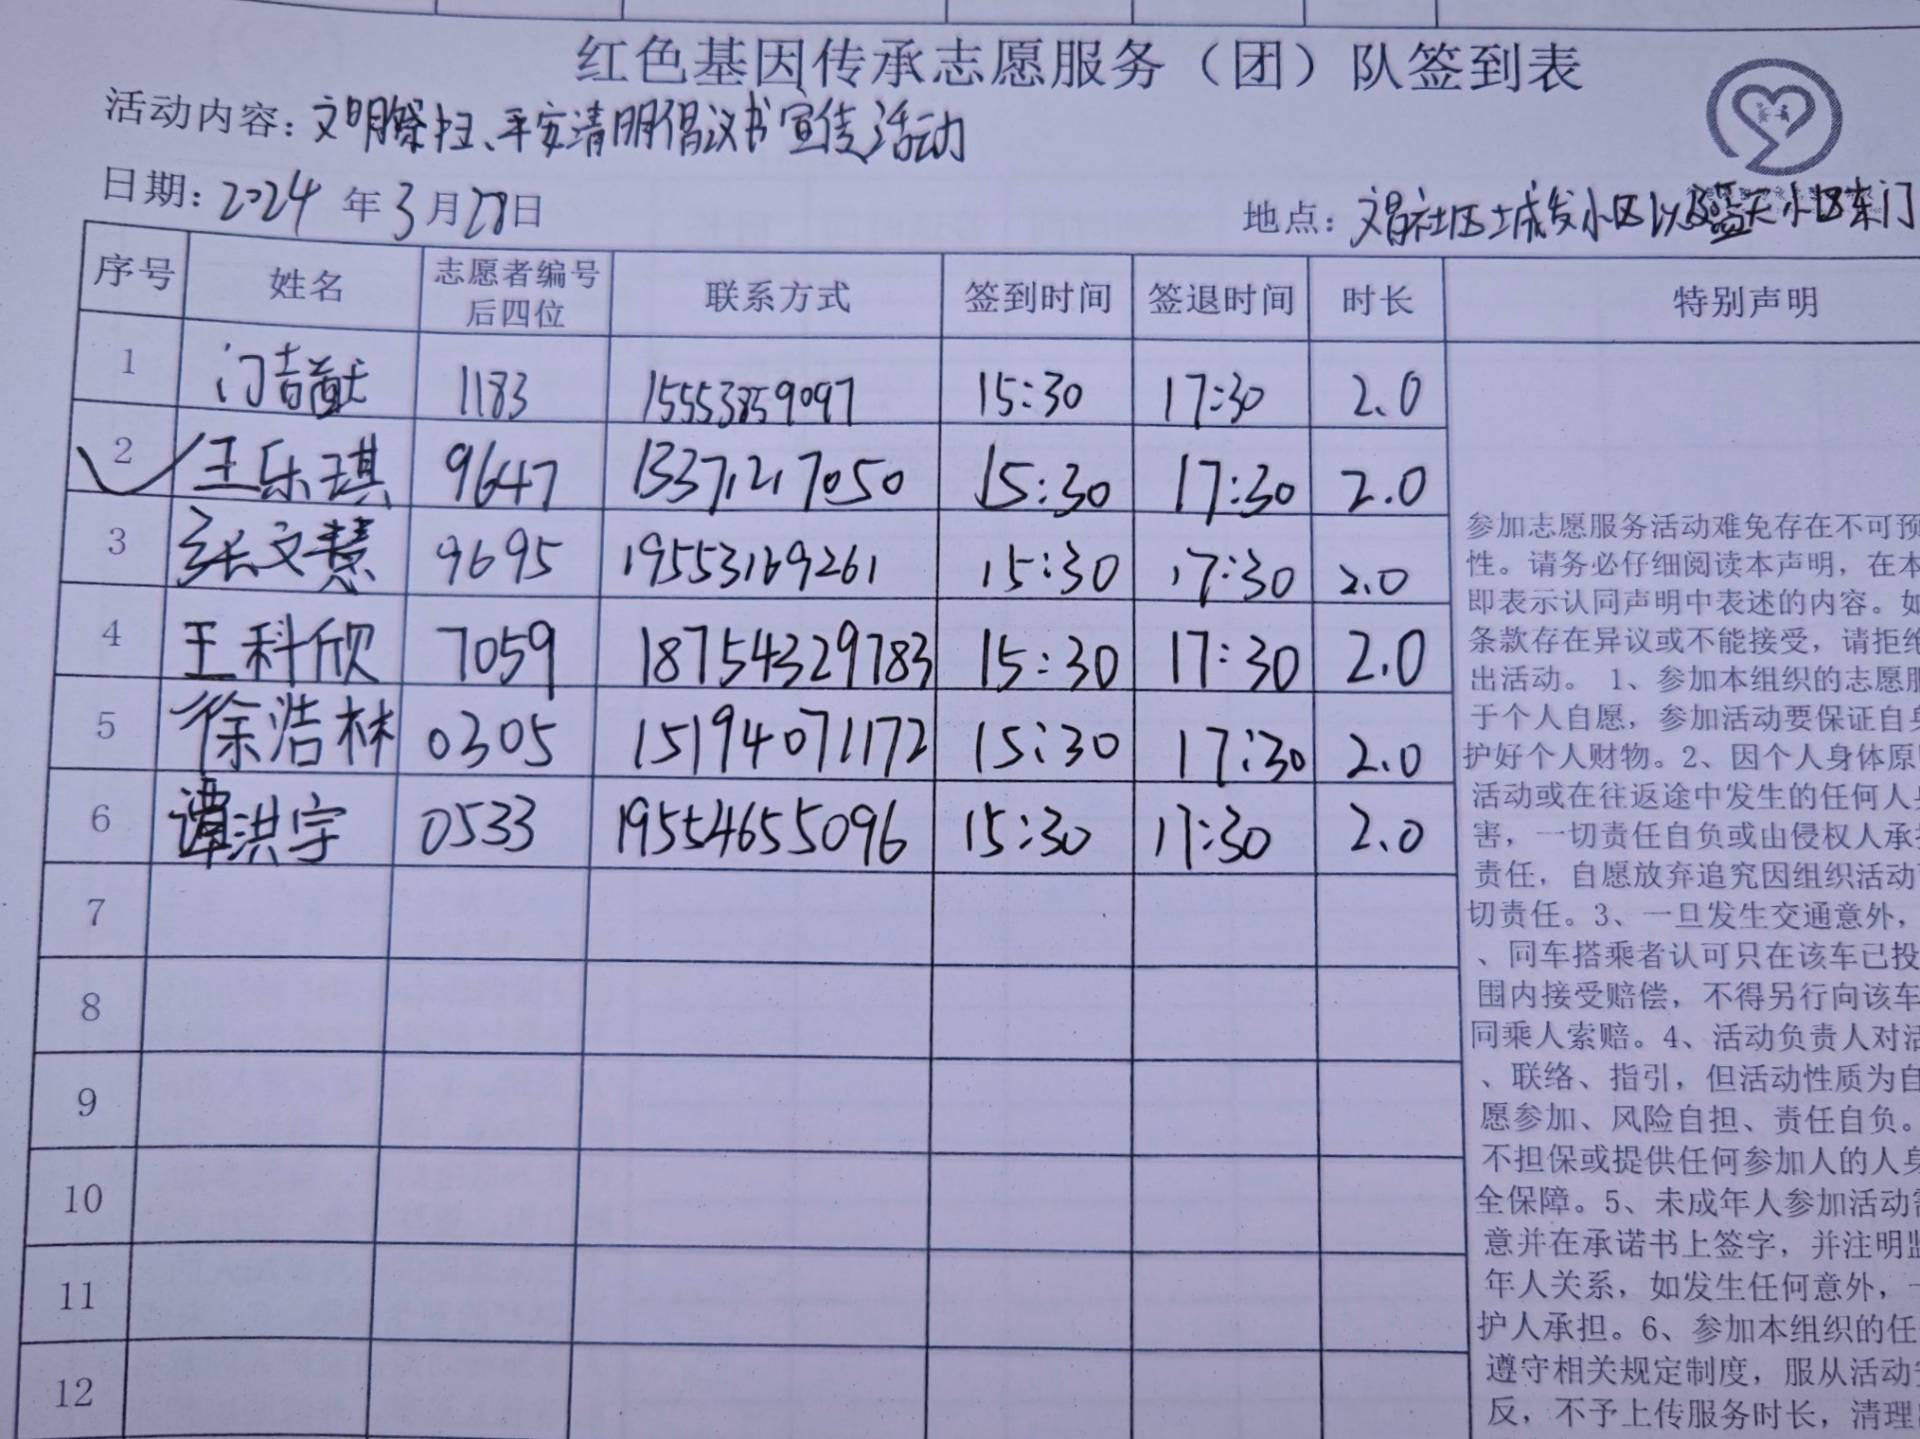 红色基因传承志愿服务（团）队签到表
活动内容：文明祭扫、平安清明倡议书宣传活动
日期：2024年3月28日
地点：文昌社区城发小区以及蓝天小区东门
序号 姓名 志愿者编号后四位 联系方式 签到时间 签退时间 时长 特别声明
1 门吉 1183 15553859097 15:30 17:30 2.0
2 王乐琪 9647 13371217050 15:30 17:30 2.0
3 张文慧 9695 19553169261 15:30 17:30 2.0
4 王科欣 7059 18754329783 15:30 17:30 2.0
5 徐浩林 0305 15194071172 15:30 17:30 2.0
6 谭洪宇 0533 19554655096 15:30 17:30 2.0
7
8
9
10
11
12
参加志愿服务活动难免存在不可预
性。请务必仔细阅读本声明，在本
即表示认同声明中表述的内容。如
条款存在异议或不能接受，请拒绝
出活动。 1、参加本组织的志愿服
于个人自愿，参加活动要保证自身
护好个人财物。2、因个人身体原
活动或在往返途中发生的任何人身
害，一切责任自负或由侵权人承担
责任，自愿放弃追究因组织活动
切责任。3、一旦发生交通意外，
、同车搭乘者认可只在该车已投
围内接受赔偿，不得另行向该车
同乘人索赔。4、活动负责人对活
、联络、指引，但活动性质为自
愿参加、风险自担、责任自负。
不担保或提供任何参加人的人身
全保障。5、未成年人参加活动需
意并在承诺书上签字，并注明监
年人关系，如发生任何意外，一
护人承担。6、参加本组织的任
遵守相关规定制度，服从活动安
反，不予上传服务时长，清理